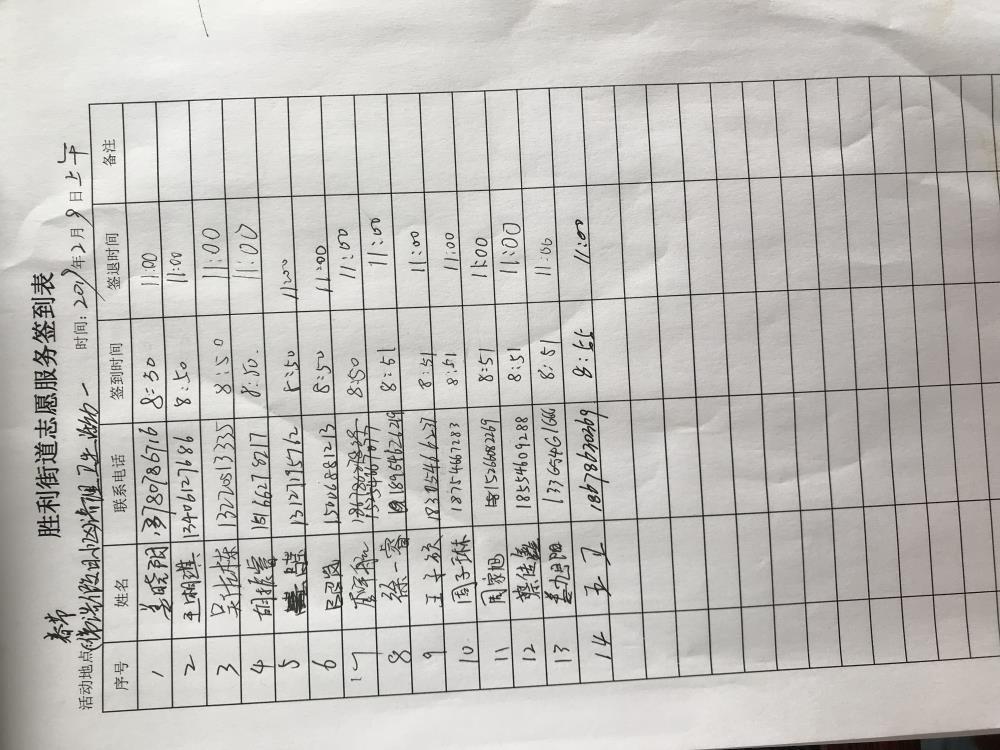 胜利街道志愿服务签到表
春节
活动地点 时间：2019年2月9日上午
序号 姓名 联系电话 签到时间 签退时间 备注
1 姜晓阳 13780786716 8:50 11:00
2 王湘琪 13406127686 8:50 11:00
3 13220813335 8:50 11:00
4 胡振睿 15166278217 8:50. 11:00
5 13127195762 8:50 11:00
6 15006881213 8:50 11:00
7 8:50 11:00
8 徐一睿 18954621219 8:51 11:00
9 王子欣 8:51 11:00
10 周子琳 18754667283 8:51 11:00
11 周家旭 15266682269 8:51 11:00
12 18554609288 8:51 11:00
13 8:51 11:00
14 王卫 18678630269 8:55 11:00